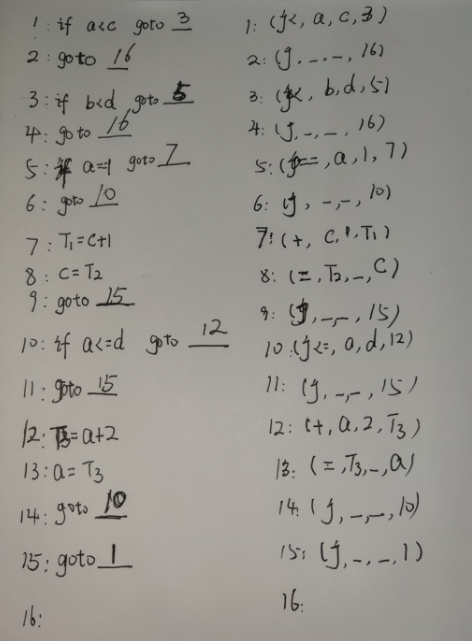 1: if a<c goto 3
2: goto 16
3: if b<d goto 5
4: goto 16
5: if a=1 goto 7
6: goto 10
7: T₁=c+1
8: C=T₂
9: goto 15
10: if a<=d goto 12
11: goto 15
12: T₃=a+2
13: a=T₃
14: goto 10
15: goto 1
16:
1: (j<, a, c, 3)
2: (j, -, -, 16)
3: (j<, b, d, 5)
4: (j, -, -, 16)
5: (j==, a, 1, 7)
6: (j, -, -, 10)
7: (+, C, 1, T₁)
8: (=, T₂, -, C)
9: (j, -, -, 15)
10: (j<=, a, d, 12)
11: (j, -, -, 15)
12: (+, a, 2, T₃)
13: (=, T₃, -, a)
14: (j, -, -, 10)
15: (j, -, -, 1)
16: